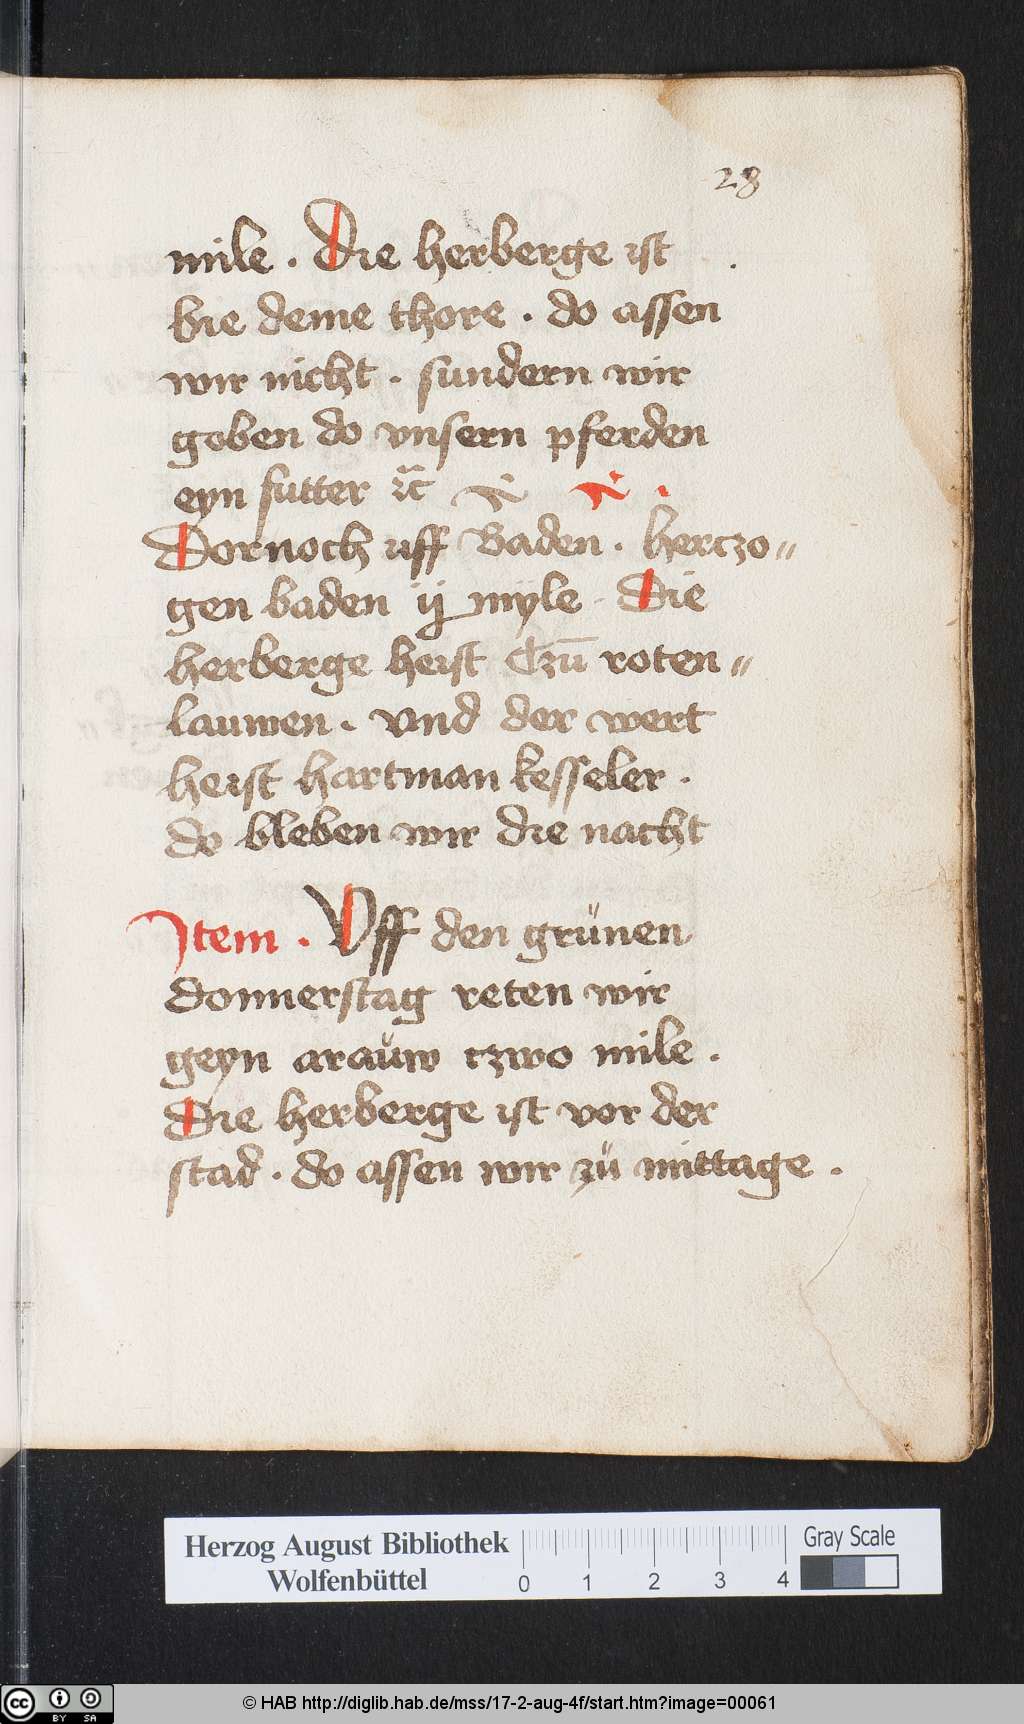 28
mile . Die herberge ist
bie deme thore . do assen
wir nicht . sundern wir
geben do vnsern pferden
eyn futter
Dornoch uff Baden . herczo„
gen baden ij myle . Die
herberge heist Czū roten„
lauwen . vnd der wert
heist hartman kesseler .
do bleben wir die nacht
Item . Vff den grünen
donnerstag reten wir
geyn arauw czwo mile .
Die herberge ist vor der
stad . do assen wir zů mittage .
Herzog August Bibliothek
Wolfenbüttel
0 1 2 3 4
Gray Scale
cc BY SA
© HAB http://diglib.hab.de/mss/17-2-aug-4f/start.htm?image=00061